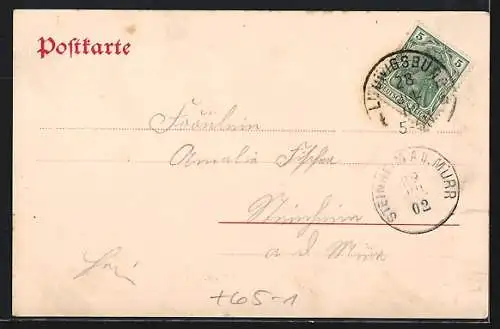 Postkarte
5 5
LUDWIGSBURG
28
5-
Fräulein
Amalie Fischer
STEINHEIM A.D. MURR
02
Steinheim
a. d. Murr
frei
+65-1